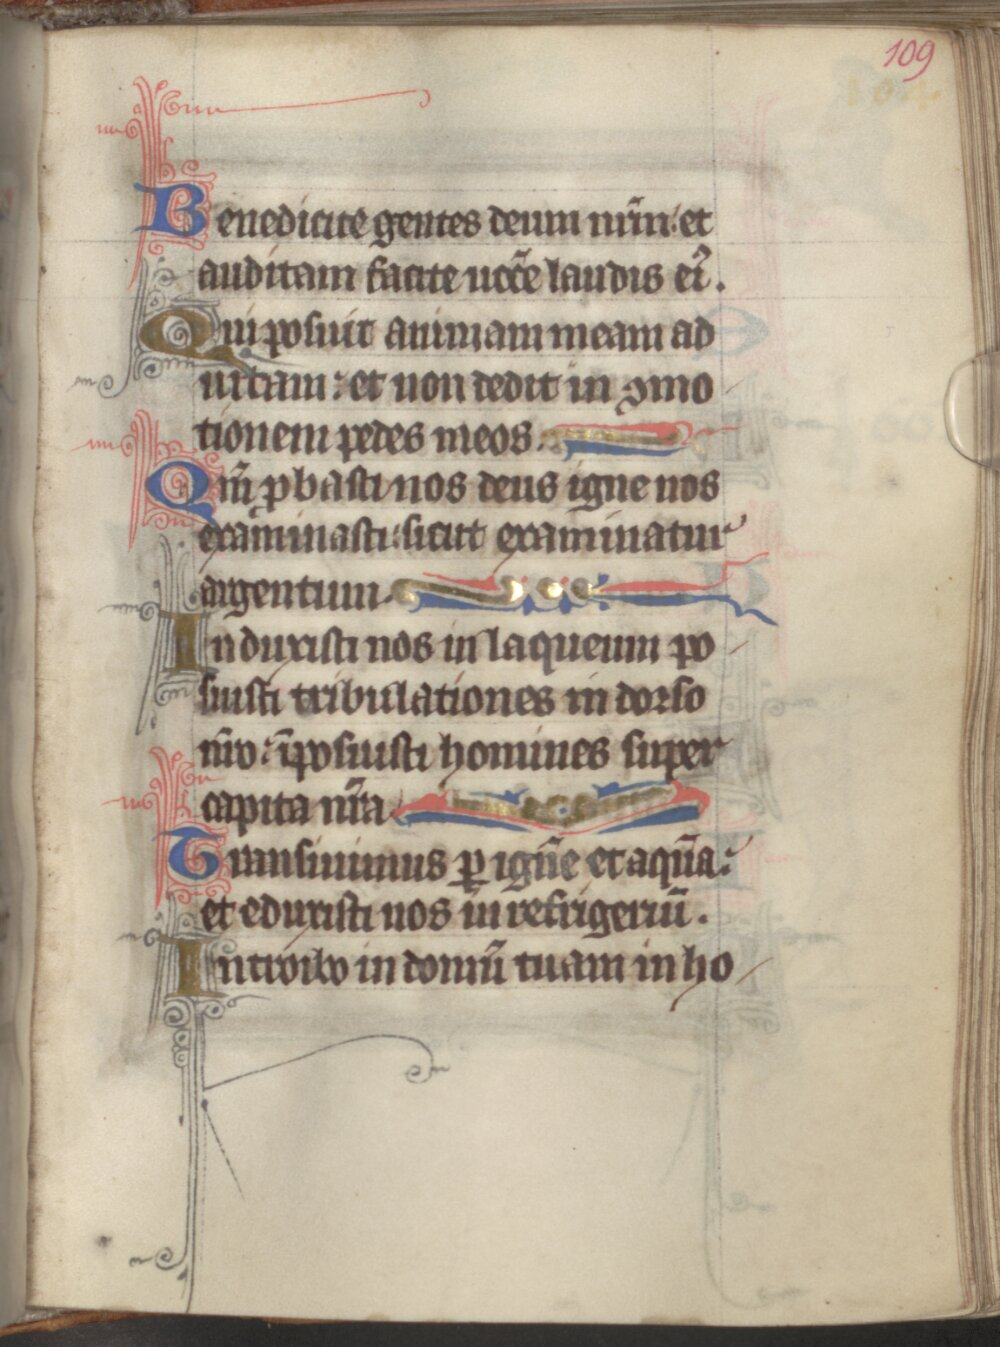 109
Benedicite gentes deum nr̄m· et
auditam facite uoc̄e laudis ei᷒.
Qui posuit animam meam ad
uitam: et non dedit in ꝯmo
tionem pedes meos.
Qm̄ ꝓbasti nos deus igne nos
examinasti sicut examinatur
argentum.
Induxisti nos in laqueum po
suisti tribulationes in dorso
nr̄o: īposuisti homines super
capita nr̄a
Transiuimus ꝑ ign̄e et aqūa:
et eduxisti nos in refrigeriū.
Introibo in domū tuam in ho